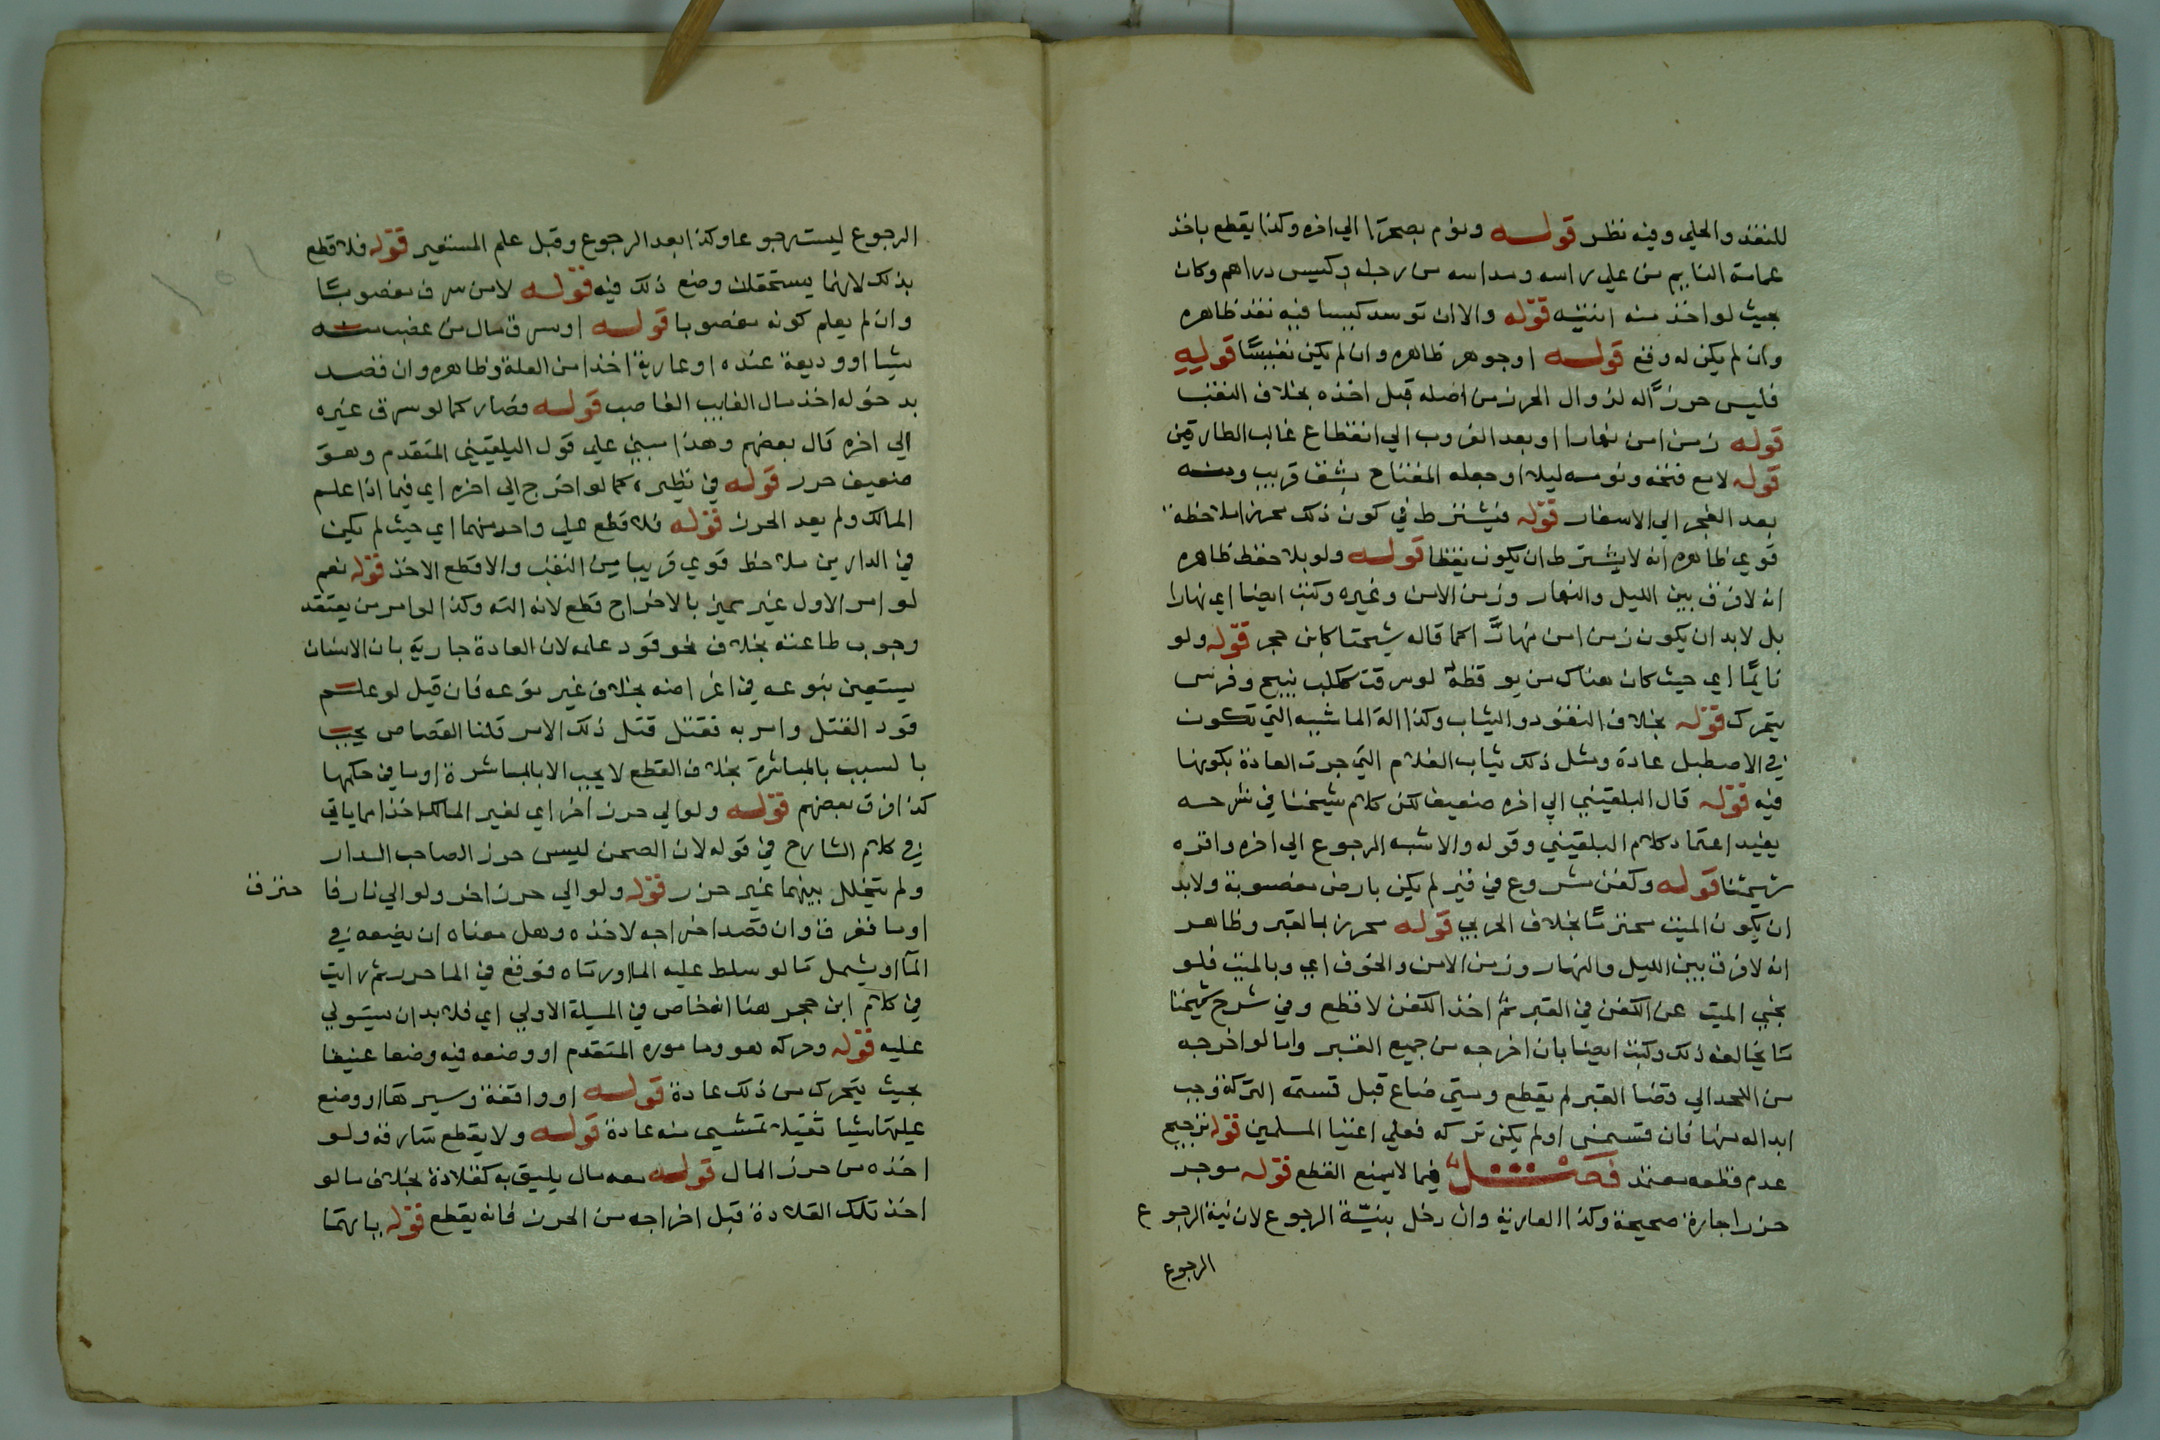 للنقد والحلي وفيه نظر قوله ونوم بصحرا الي اخره وكذا يقطع باخذ
عمامة النايم من علي راسه ومداسه من رجله وكيس دراهم وكان
بحيث لو اخذ منه انتبه قوله والا ان توسد كيسا فيه نقد ظاهره
وان لم يكن له وقع قوله او جوهر ظاهره وان لم يكن نفيسا قوله
فليس حرزا له لزوال الحرز من اصله قبل اخذه بخلاف النقب
قوله زمن امن نهارا او بعد الغروب الي انقطاع غالب الطارقين
قوله لا مع فتحه ونومه ليلا او جعله المفتاح بشق قريب ومنه
بعد الفجر الي الاسفار قوله فيشترط في كون ذلك محرزا ملاحظة
قوي ظاهره انه لا يشترط ان يكون يقظا قوله ولو بلا حفظ ظاهره
انه لا فرق بين الليل والنهار وزمن الامن وغيره وكتب ايضا اي نهارا
بل لابد ان يكون زمن امن نهارا كما قاله شيخنا كابن حجر قوله ولو
نايما اي حيث كان هناك من يوقظه لو سرقت ككلب ينبح وفرس
يتحرك قوله بخلاف النقود والثياب وكذا الة الماشيه التي تكون
في الاصطبل عادة ومثل ذلك ثياب الغلام التي جرت العادة بكونها
فيه قوله قال البلقيني الي اخره ضعيف لكن كلام شيخنا في شرحه
يفيد اعتماد كلام البلقيني وقوله والاشبه الرجوع الي اخره واقره
شيخنا قوله وكفن مشروع في قبر لم يكن بارض مغصوبة ولابد
ان يكون الميت محترما بخلاف الحربي قوله محرز بالقبر وظاهر
انه لا فرق بين الليل والنهار وزمن الامن والخوف اي وبالميت فلو
نحي الميت عن الكفن في القبر ثم اخذ الكفن لا قطع وفي شرح شيخنا
ما يخالف ذلك وكتب ايضا بان اخرجه من جميع القبر واما لو اخرجه
من اللحد الي فضا القبر لم يقطع ومتي ضاع قبل قسمة التركة وجب
ابداله منها فان قسمت او لم يكن تركه فعلي اغنيا المسلمين قوله ترجيح
عدم قطعه معتمد فصل فيما لا يمنع القطع قوله موجر
حرز اجارة صحيحة وكذا العارية وان دخل بنية الرجوع لان نية الرجوع
الرجوع
الرجوع ليست رجوعا وكذا بعد الرجوع وقبل علم المستعير قوله فلا قطع
بذلك لانهما يستحقان وضع ذلك فيه قوله لا من سرق مغصوبا
وان لم يعلم كونه مغصوبا قوله او سرق مال من غصب منه
شيا او وديعة عنده او عارية اخذا من العلة وظاهره وان قصد
بدخوله اخذ مال الغايب الغاصب قوله فصار كما لو سرق غيره
الي اخره قال بعضهم وهذا مبني علي قول البلقيني المتقدم وهو
ضعيف حرر قوله في نظيره كما لو اخرج الي اخره اي فيما اذا علم
المالك ولم يعد الحرز قوله فلا قطع علي واحد منهما اي حيث لم يكن
في الدار من ملاحظ قوي قريبا من النقب والا قطع الاخذ قوله نعم
لو امر الاول غير مميز بالاخراج قطع لانه الته وكذا لو امر من يعتقد
وجوب طاعته بخلاف نحو قرد علمه لان العادة جارية بان الانسان
يستعين بنوعه في اغراضه بخلاف غير نوعه فان قيل لو علم
قرد القتل وامر به فقتل قتل ذلك الامر قلنا القصاص يجب
بالسبب بالمباشرة بخلاف القطع لا يجب الا بالمباشرة او ما في حكمها
كذا فرق بعضهم قوله ولو الي حرز اخر اي لغير المالك اخذا مما ياتي
في كلام الشارح في قوله لان الصحن ليس حرز الصاحب الدار
ولم يتخلل بينهما غير حرز قوله ولو الي حرز اخر ولو الي نار فا حترق
او ما فغرق وان قصد اخراجه لاخذه وهل معناه ان يضعه في
الما او يشمل ما لو سلط عليه الما او رماه فوقع في الما حرر ثم رايت
في كلام ابن حجر هنا انه خاص في المسيلة الاولي اي فلا بد ان يستولي
عليه قوله وحركه هو وماموره المتقدم او وضعه فيه وضعا عنيفا
بحيث يتحرك من ذلك عادة قوله او واقفة وسيرها او وضع
عليها شيا ثقيلا تمشي منه عادة قوله ولا يقطع سارقه ولو
اخذه من حرز المال قوله معه مال يليق به كقلادة بخلاف ما لو
اخذ تلك القلادة قبل اخراجه من الحرز فانه يقطع قوله بابهما